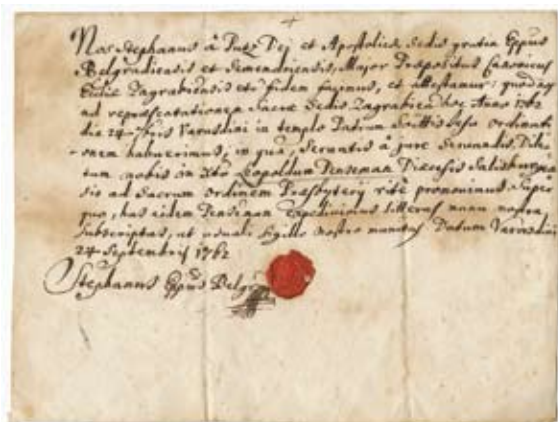 Nos Stephanus à Putz Dei et Apostolicæ Sedis gratia Eppus
Belgradiensis et Semendriensis, Major Præpositus Canonicus
Ecclie Zagrabiensis etc fidem facimus, et attestamur: quod
ad repræsentationem Sacræ Sedis Zagrabien hoc Anno 1762
die 24 7bris Varasdini in templo Patrum Societis Jesu ordinati
onem habuerimus, in qua, servatis à jure servandis Dile
tum nobis in Xto Leopoldum Penseman Diœcesis Salisburgen
sis ad Sacrum ordinem Presbyterij ritè promovimus Super
quo, has eidem Penseman expedivimus litteras manu nostra
subscriptas, et usuali sigillo nostro munitas Datum Varasdini
24 Septembris 1762
Stephanus Eppus Belgr